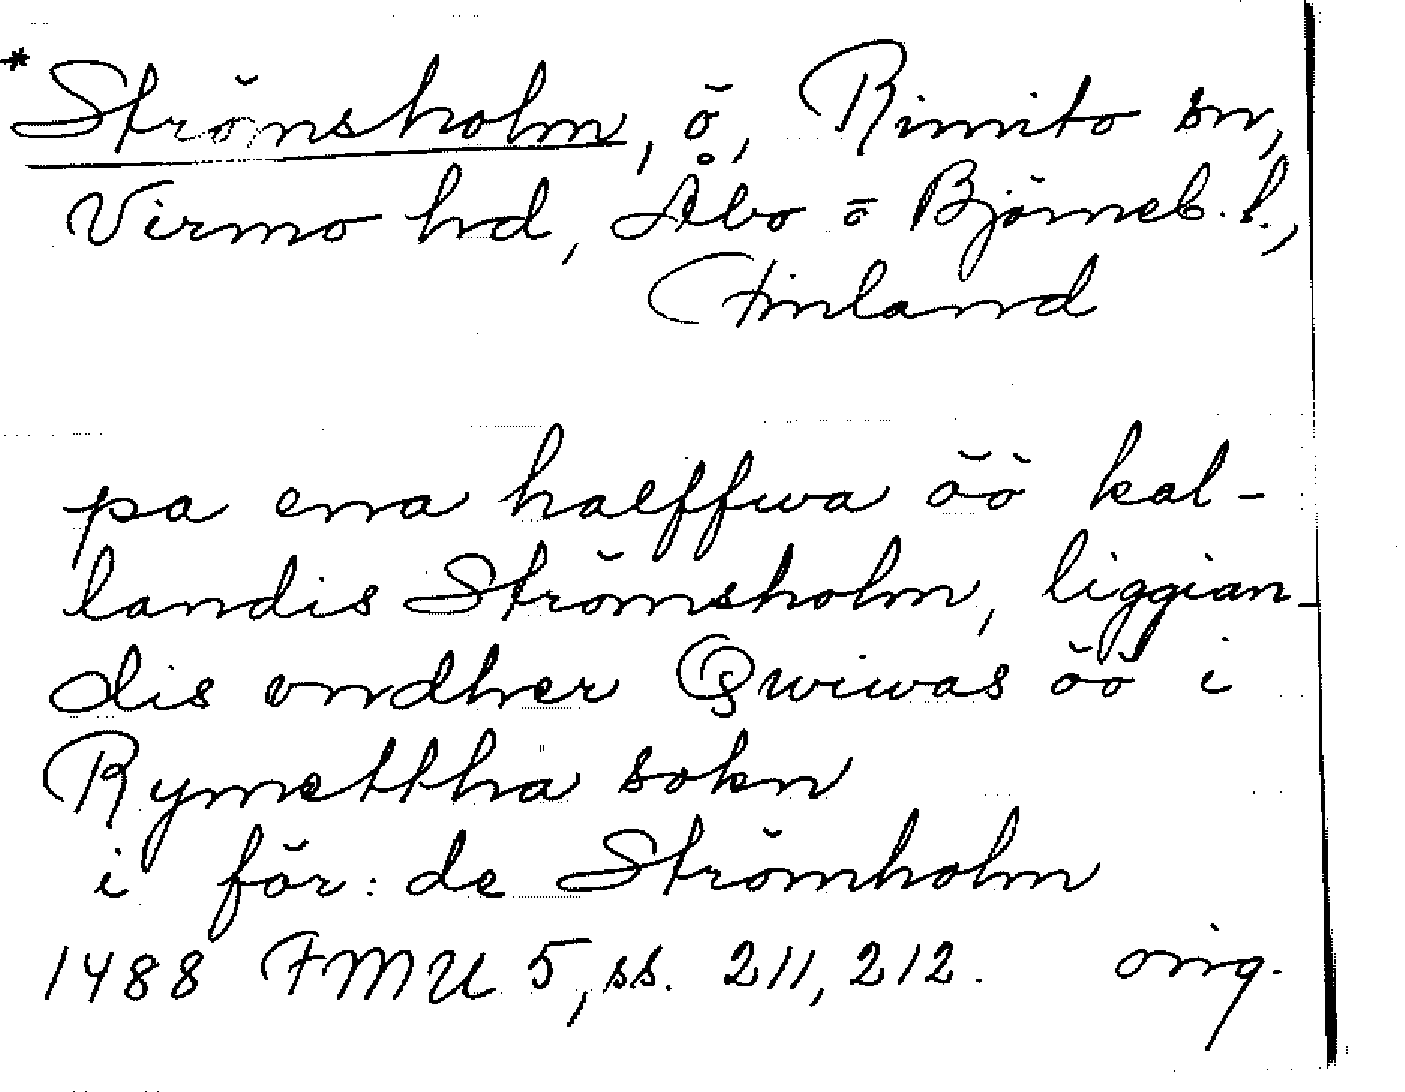 *Strömsholm, ö, Rimito sn,
Virmo hd, Åbo o Björneb. l.,
Finland
pa ena halffwa öö kal-
landis Strömsholm, liggian-
dis ondher Qwiwas öö i
Rymettha sokn
i för: de Strömholm
1488 FMU 5, ss. 211, 212. orig.